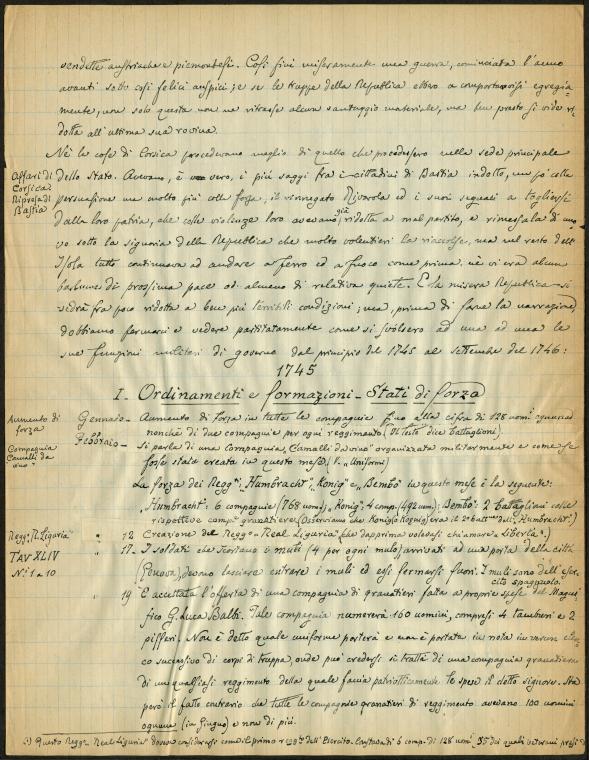 vendette austriache e piemontesi. Così finì miseramente una guerra, cominciata l'anno
avanti sotto così felici auspici; e se le truppe della Repubblica ebbero a comportarvisi egregia
mente, non solo questa non ne ritrasse alcun vantaggio materiale, ma ben presto si vide ri
dotta all'ultima sua rovina.
Nè le cose di Corsica procedevano meglio di quello che procedessero nella sede principale
Affari di
Corsica
Ripresa di
Bastia
dello Stato. Avevano, è vero, i più saggi fra i cittadini di Bastia indotto, un pò colla
persuasione ma molto più colla forza, il rinnegato Rivarola ed i suoi seguaci a togliersi
dalla loro patria, che colle violenze loro avevano già ridotta a mal partito, e rimessala di nuo
vo sotto la signoria della Repubblica che molto volentieri la riaccolse, ma nel resto dell'
Isola tutto continuava ad andare a ferro ed a fuoco come prima nè vi era alcun
barlume di prossima pace od almeno di relativa quiete. E la misera Repubblica si
vedrà fra poco ridotta a ben più terribili condizioni; ma, prima di farne la narrazione,
dobbiamo fermarci e vedere partitatamente come si svolsero ad una ad una le
sue funzioni militari di governo dal principio del 1745 al settembre del 1746:
1745
I - Ordinamenti e formazioni - Stati di forza
Aumento di
forza
Gennaio - Aumento di forza in tutte le compagnie fino alla cifra di 128 uomi ognuna
nonchè di due compagnie per ogni reggimento (Il testo dice battaglione).
Compagnia
Camalli da
vino"
Febbraio - Si parla di una Compagnia "Camalli da vino" organizzata militarmente e come se
fosse stata creata in questo mese (V. "Uniformi)
La forza dei Reggti "Humbracht", "Konig" e "Bembo" in questo mese è la seguente:
"Humbracht": 6 compagnie (768 uomi) "Konig": 4 comp. (492 uom.); "Bembo": 2 battaglioni colle
rispettive compe granatiere (Osserviamo che Konig (o Kognig) era il 2º battne dell'"Humbracht".)
Regg. "R. Liguria"
" 12 Creazione del Reggto "Real Liguria" (che dapprima voleasi chiamare "Libertà".)
TAV. XLIV
Ni 1 a 10
" 17 I soldati che scortano i muli (4 per ogni mulo) arrivati ad una porta della città
(Genova), devono lasciare entrare i muli ed essi fermarsi fuori. I muli sono dell'eser-
cito spagnuolo.
" 19 È accettata l'offerta di una compagnia di granatieri fatta a proprie spese dal Magni
fico G. Luca Balbi. Tale compagnia numererà 160 uomini, compresi 4 tamburi e 2
pifferi. Non è detto quale uniforme porterà e non è portata in nota in verun elen
co successivo di corpi di truppa, onde può credersi si tratti di una compagnia granatieri
di un qualsiasi reggimento della quale faccia patriotticamente le spese il detto signore. Sta
però il fatto contrario che tutte le compagnie granatieri di reggimento avevano 100 uomini
ognuna (in Giugno) e non di più.
Questo Reggto "Real Liguria" dovea considerarsi come il primo reggto dell'Esercito. Constava di 6 comp. di 128 uomi 35 dei quali veterani presi